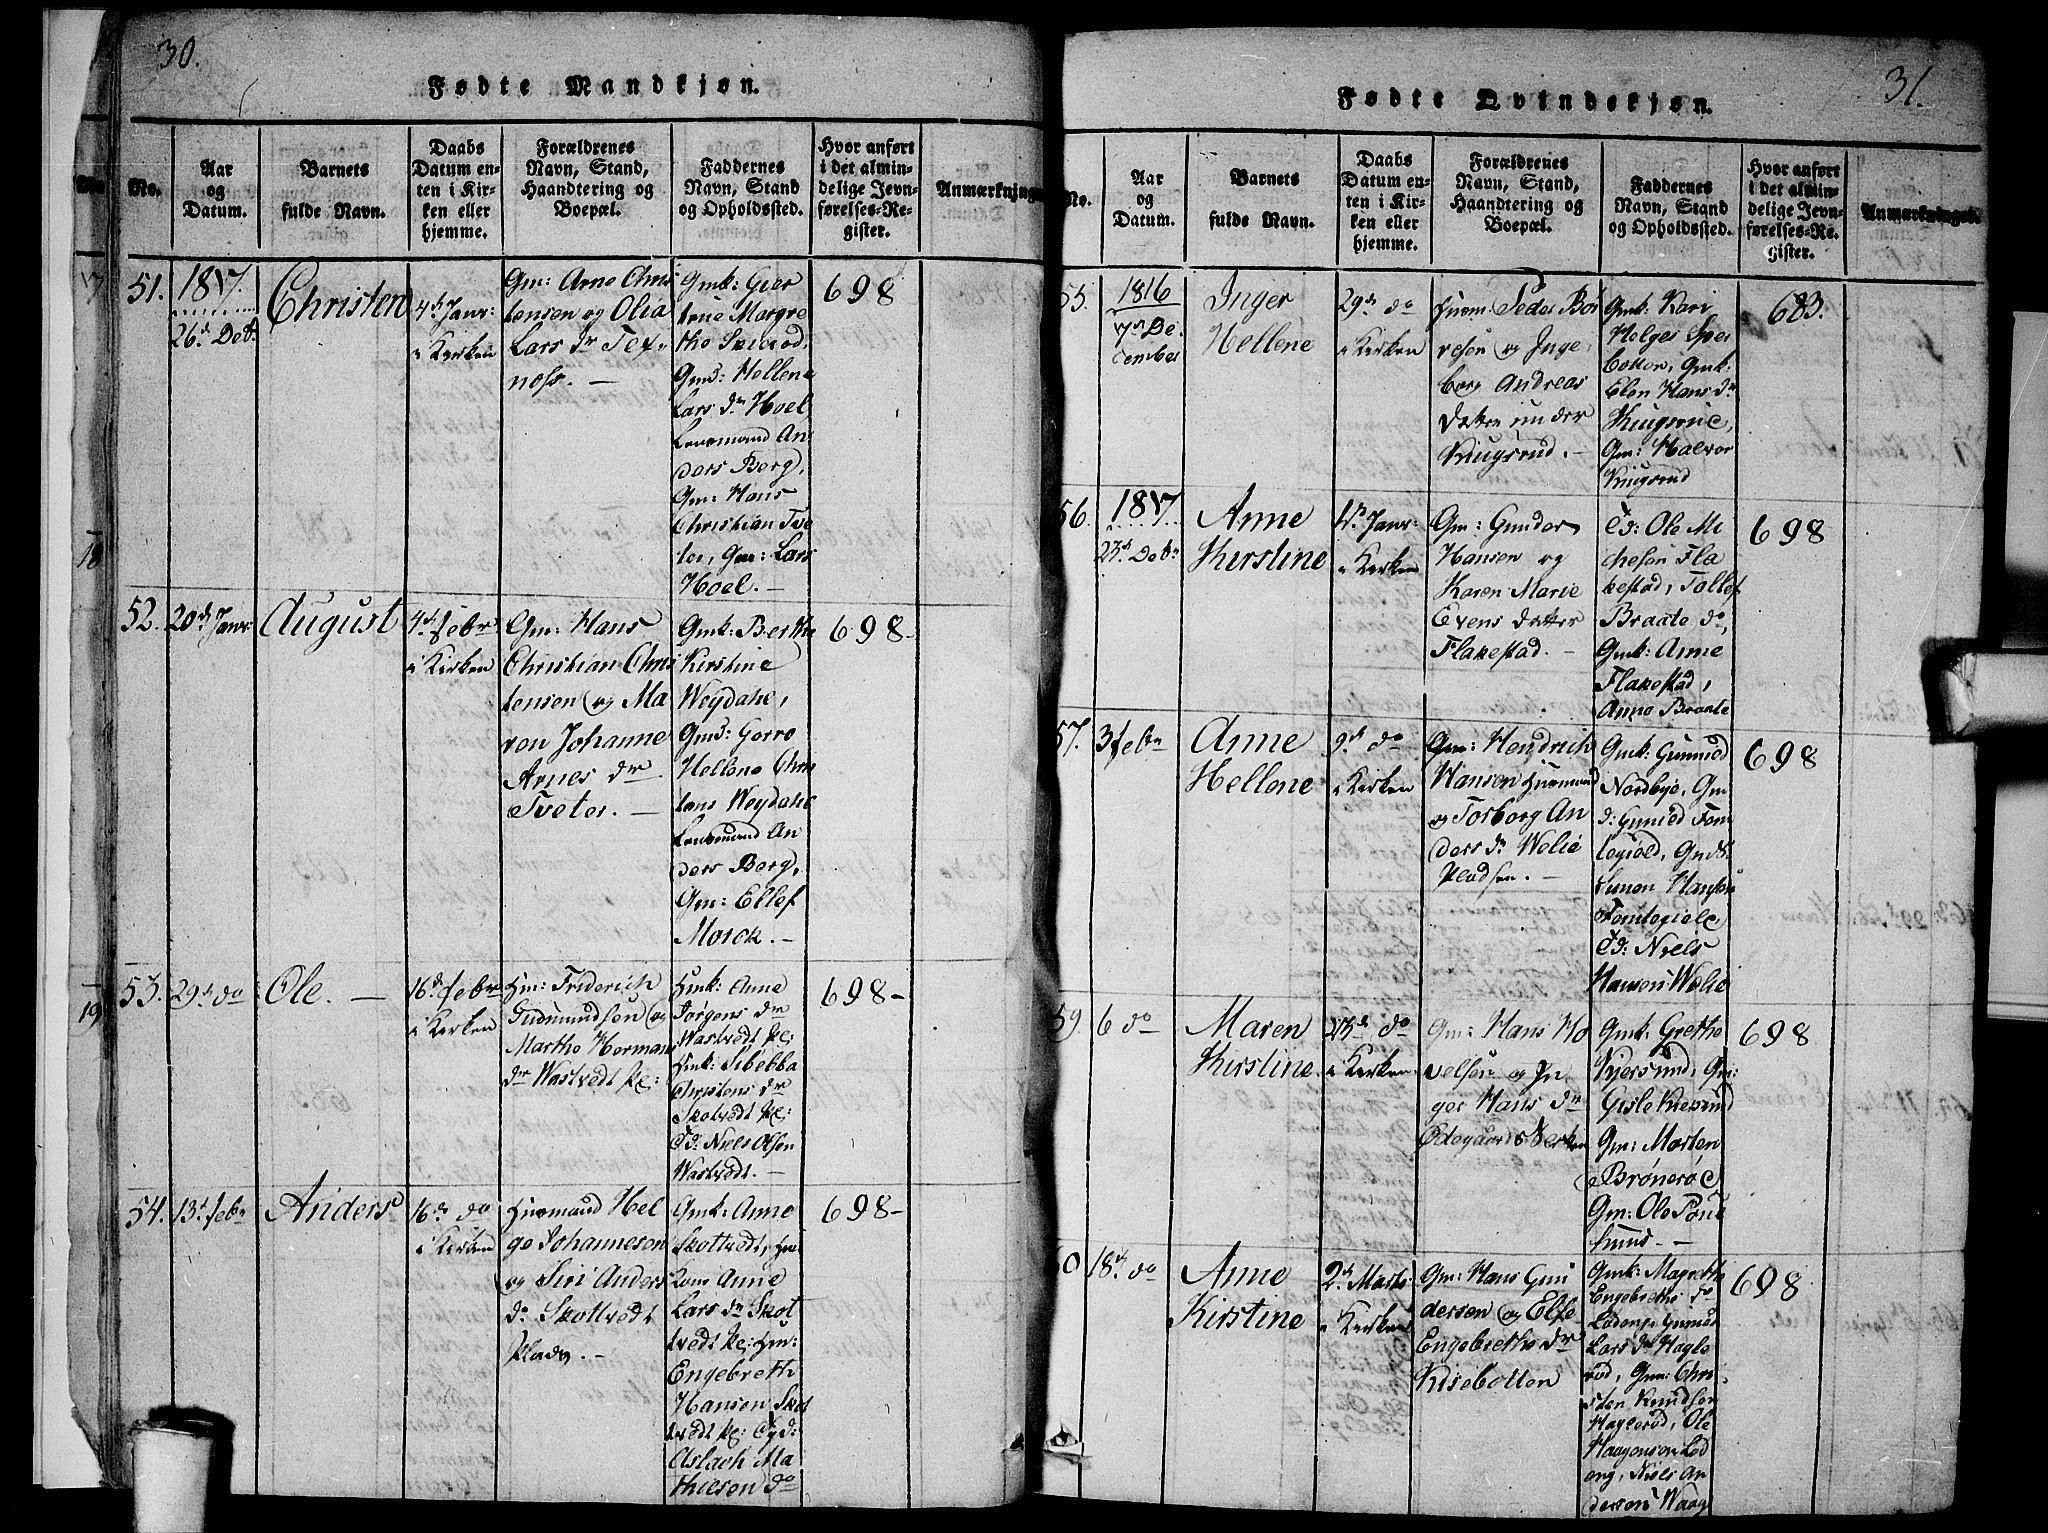 30.
Fødte Mandkjøn.
No.
Aar
og
Datum.
Barnets
fulde Navn.
Daabs
Datum en-
ten i Kir-
ken eller
hjemme.
Forældrenes
Navn, Stand,
Haandtering og
Boepæl.
Faddernes
Navn, Stand
og Opholdssted.
Hvor anført
i det almin-
delige Jevn-
førelses-Re-
gister.
Anmærkninger
51.
1817.
26. Decbr.
Christen
4de Janr:
i Kirken
Gm: Arne Chris
tensen og Olia
Lars dr Tex-
ness. —
Gmk: Gier
true Margre
the Svinrod,
Gmd: Hellene
Lars dr Hoel
Lensmand An
ders Berg,
Gm: Hans
Christian Tve
ter, Gm: Lars
Hoel. —
698
52.
20de Janr:
August
4de Febr
i Kirken
Gm: Hans
Christian Chris
tensen og Ma
ren Johanne
Arnes dr
Tveter. —
Gmk: Berthe
Kirstine
Weydahl,
Gmd: Gorro
Hellene Chris
tens Weydahl
Lensmand An
ders Berg,
Gm: Ellef
Morck. —
698-
53.
29de do
Ole. —
16de Febr
i Kirken
Hm: Friderich
Gudmundsen og
Marthe Herman
dr Wastvedt Pl:
Hmk: Anne
Jørgens dr
Wastvedt Pl:
Hmk: Sibebba
Christens dr
Skotvedt Pl:
Td: Niels Olsen
Wastvedt. —
698-
54.
13de Febr
Anders
16de do
i Kirken
Huusmand Hel
ge Johannesen
og Siri Anders
dr Skottvedt
Plads. —
Gmk: Anne
Skottvedt, Huus
Kone Anne
Lars dr Skot
tvedt Pl: Hm:
Engebreth
Hansen Skot
tvedt Pl: Tyd:
Aslach Ma
thiesen do
698-
31.
Fødte Qvindekjøn.
No.
Aar
og
Datum.
Barnets
fulde Navn.
Daabs
Datum en-
ten i Kir-
ken eller
hjemme.
Forældrenes
Navn, Stand,
Haandtering og
Boepæl.
Faddernes
Navn, Stand
og Opholdssted.
Hvor anført
i det almin-
delige Jevn-
førelses-Re-
gister.
Anmærkninger.
55.
1816
7de De-
cember
Inger
Hellene
29de do
i Kirken
Huusm: Peder Bør
resen og Inge-
borg Andreas
Datter under
Kiugsrud. —
Gmk: Kari
Helges Spei
botten, Gmk:
Elen Hans dr
Kiugsrud,
Gm: Halvor
Kiugsrud
683.
56.
1817.
23de Decbr
Anne
Kirstine
4de Janr:
i Kirken
Gm: Gunder
Hansen og
Karen Marie
Evens datter
Flakestad. —
Td: Ole Mi
chesen Fla
kestad, Tollef
Braate do,
Gmk: Anne
Flakestad,
Anne Braate
698
57.
3 Febr
Anne
Hellene
9de do
i Kirken
Gm: Hendrich
Hansen Huusmand
og Torborg An
ders dr Welie
Pladsen. —
Gmk: Gunild
Nordbye, Gm
d: Gunild Tom
tegield, Gmds:
Simen Hansen
Tomtegield,
Td: Niels
Hansen Welie
698
59.
6 do
Maren
Kirstine
23de do
i Kirken
Gm: Hans Ho
velsen og In
ger Hans dr
Ødegaards Verken
Gmk: Grethe
Kjersund, Gm:
Gisle Kiersund
Gm: Morten
Brønerød,
Gm: Ole Poue
huus. —
698
60
18de do
Anne
Kirstine
2de Marts
i Kirken
Gm: Hans Gun
dersen og Else
Engebreths dr
Kisebotten
Gmk: Magrethe
Engebreths dr
Lødeng, Gunild
Lars dr Hagle
rød, Gm: Chri-
sten Knudsen
Haglerød, Ole
Haagensen Lød
eng, Niels An
dersen Waag
698
17
18
19